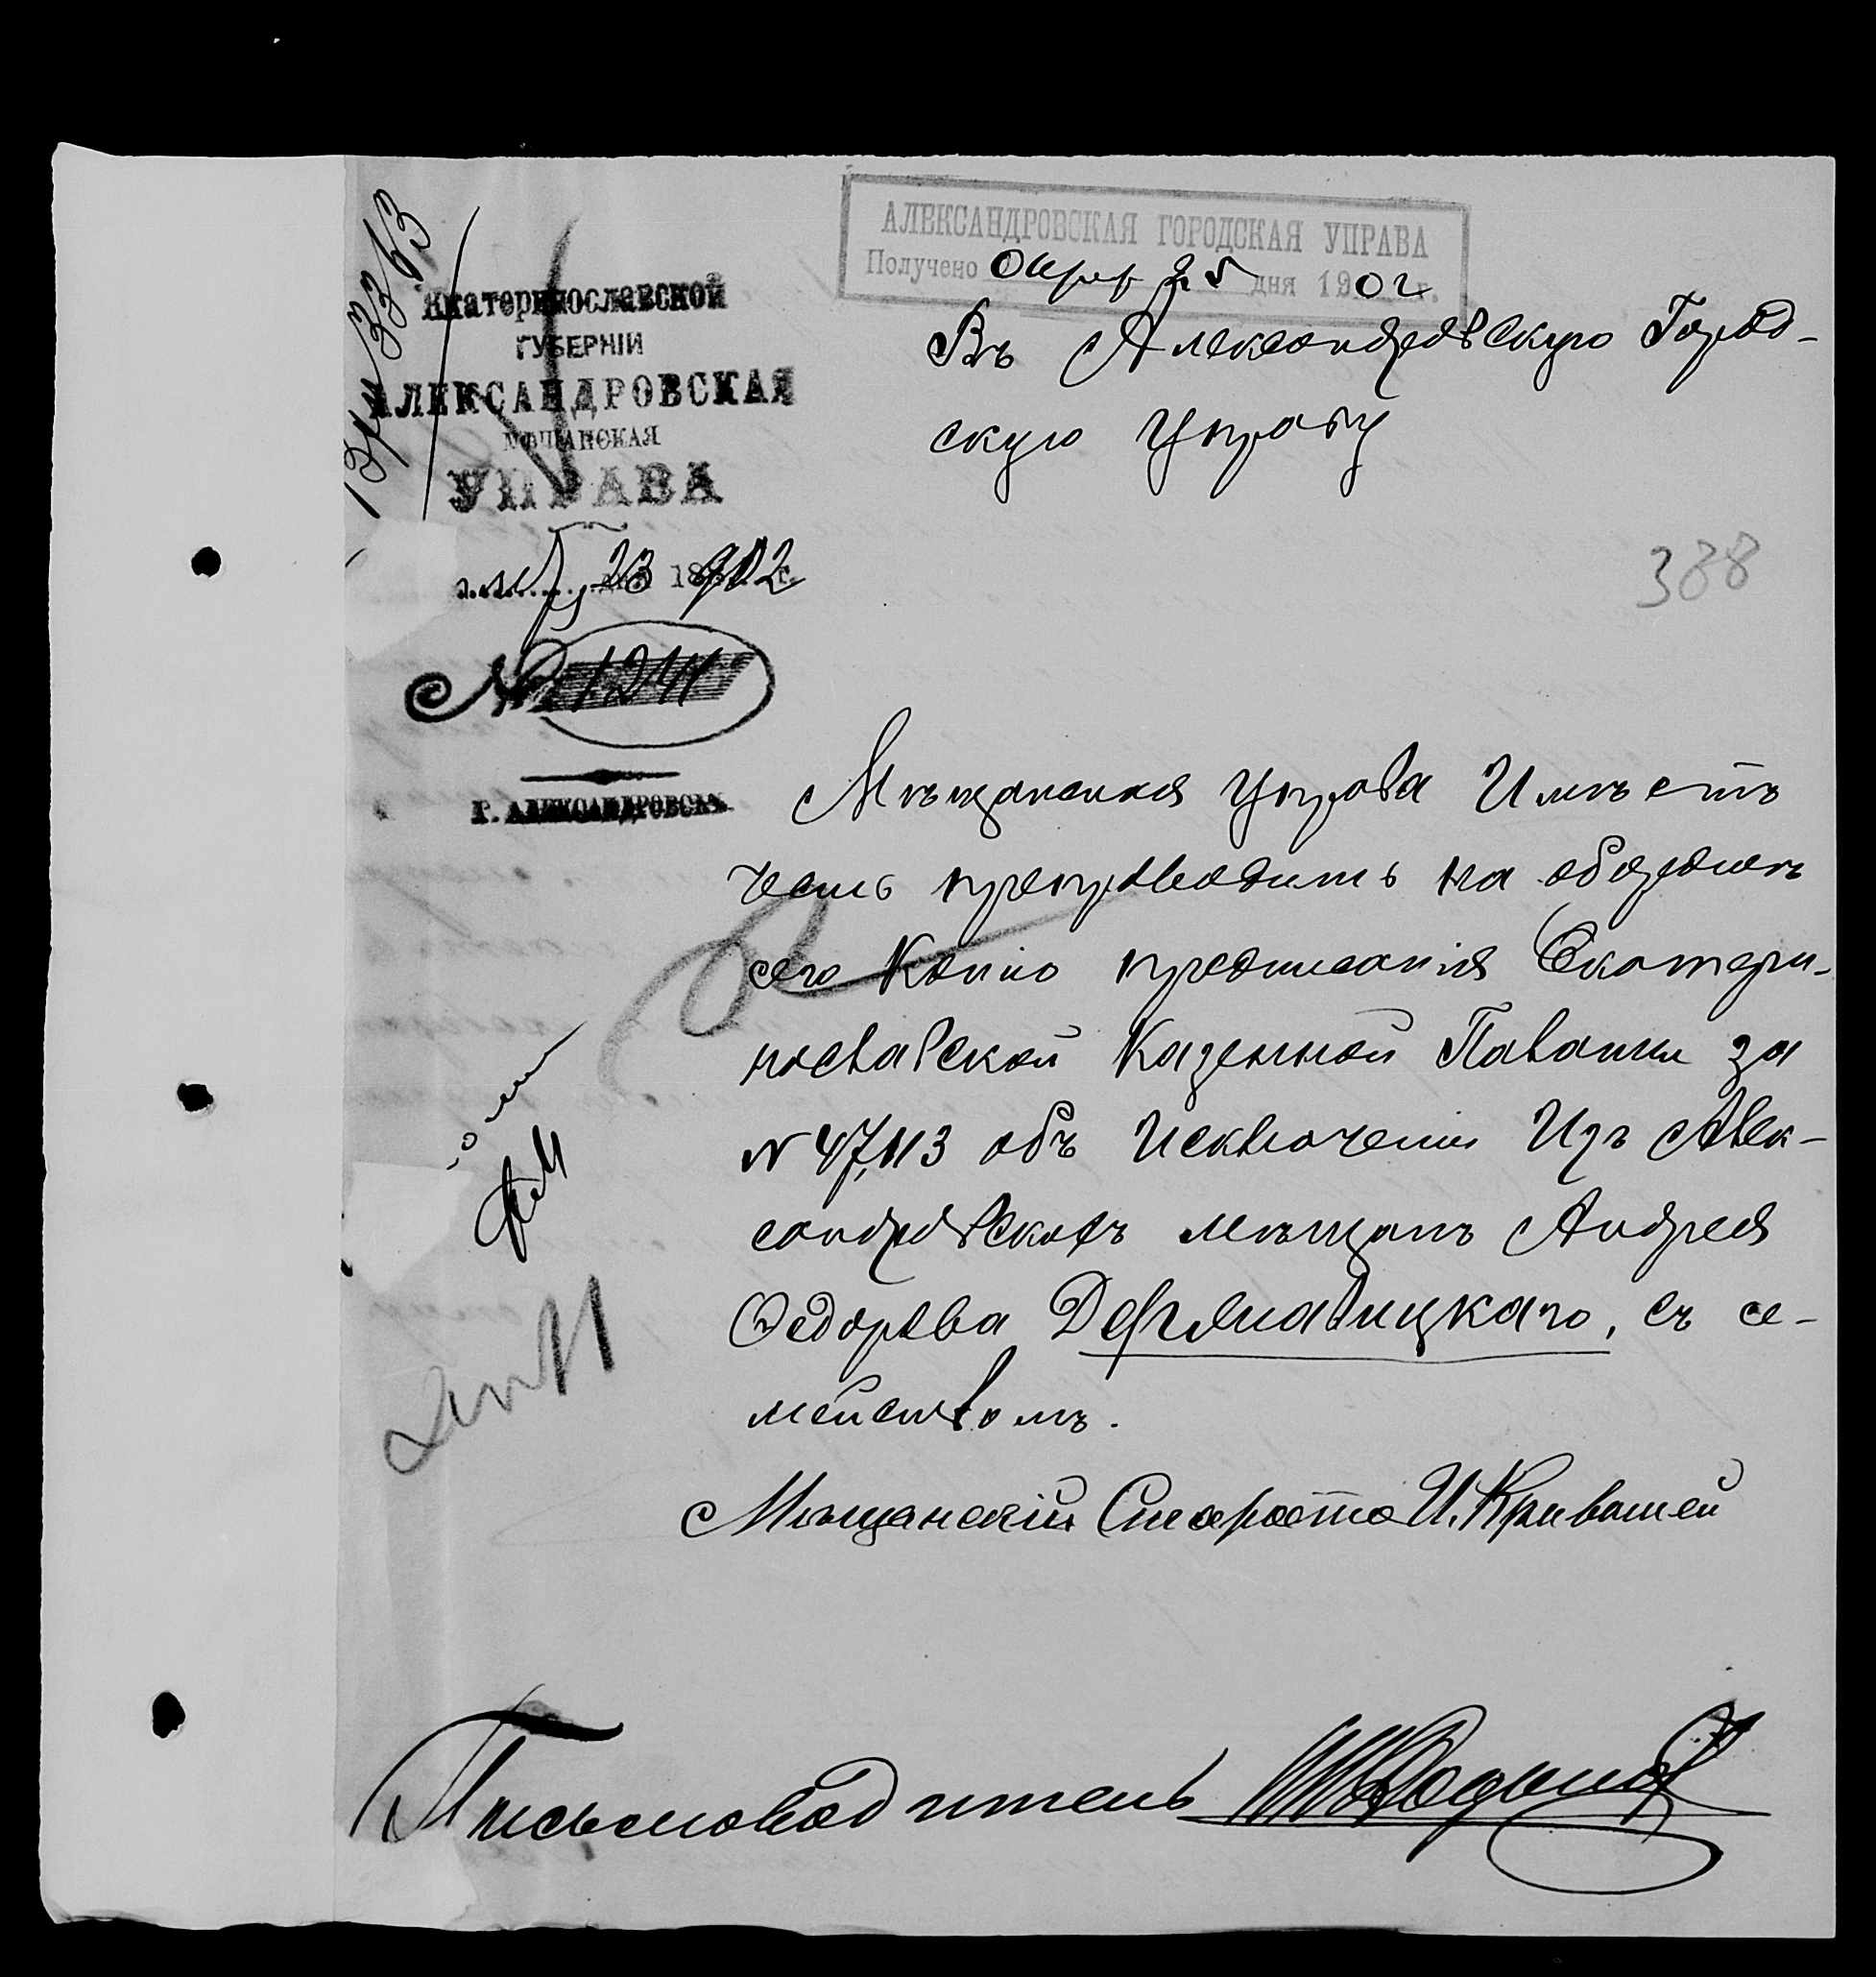 АЛЕКСАНДРОВСКАЯ ГОРОДСКАЯ УПРАВА
Получено 25 дня 1902 г.
Екатеринославской
ГУБЕРНІИ
АЛЕКСАНДРОВСКАЯ
МѢЩАНСКАЯ
УПРАВА
23 1902 г.
№ 1241
Г. АЛЕКСАНДРОВСКЪ
Въ Александровскую Город-
скую Управу
388
Мѣщанская Управа Имѣетъ
честь препроводить на оборотѣ
сего Копію предписанія Екатери-
нославской Казенной Палаты за
N 47,113 объ Исключеніи Изъ Алек-
сандровскихъ мѣщанъ Андрея
Ѳедорова, съ се-
мействомъ.
Мѣщанскій Староста И. Кривошей
Письмоводитель